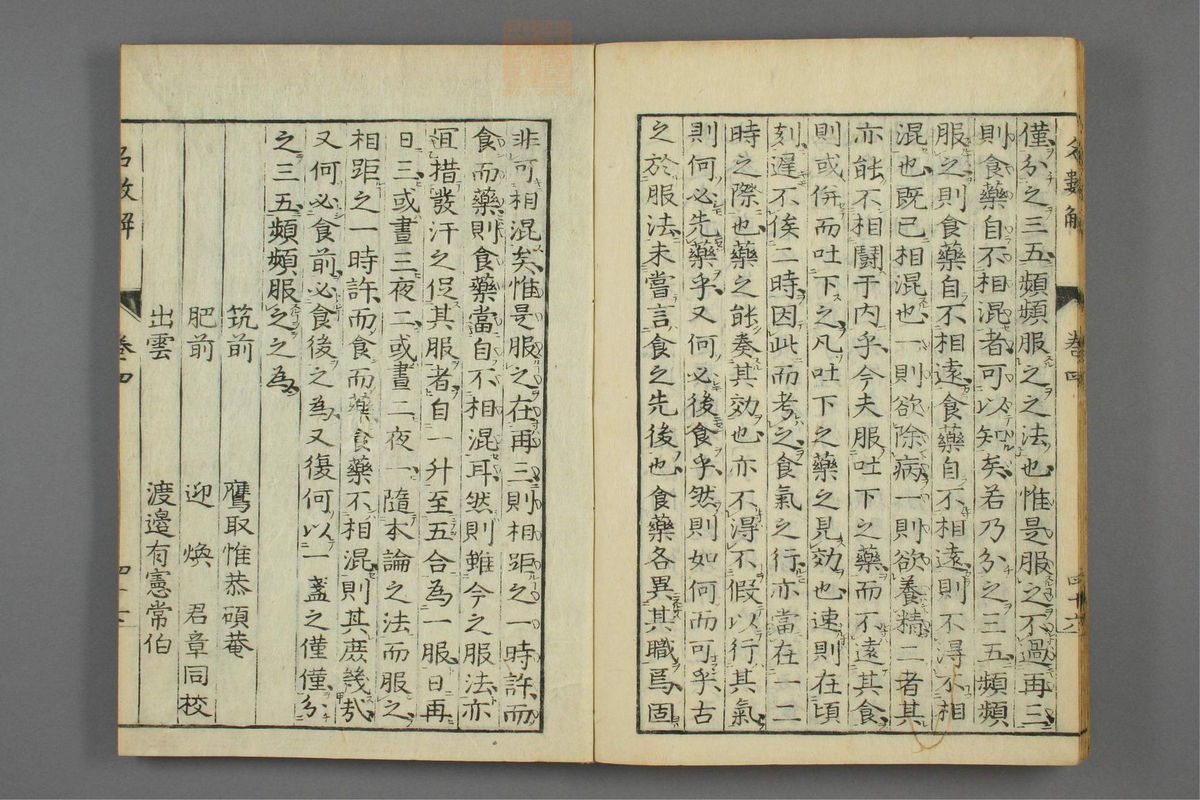 僅分之三五頻頻服之之法也惟是服之不過再三
則食藥自不相混者可以知矣若乃分之三五頻頻
服之則食藥自不相遠食藥自不相遠則不得不相
混也既已相混也一則欲除病一則欲養精二者其
亦能不相鬪于内乎今夫服吐下之藥而不遠其食
則或併而吐下之凡吐下之藥之見効也速則在頃
刻遲不俟二時因此而考之食氣之行亦當在一二
時之際也藥之能奏其効也亦不得不假以行其氣
則何必先藥乎又何必後食乎然則如何而可乎古
之於服法未嘗言食之先後也食藥各異其職焉固
非可相混矣惟是服之在再三則相距之一時許而
食而藥則食藥當自不相混耳然則雖今之服法亦
宜措發汗之促其服者自一升至五合為一服日再
日三或晝三夜二或晝二夜一隨本論之法而服之
相距之一時許而食而藥食藥不相混則其庶幾哉
又何必食前必食後之為又復何以一盞之僅僅分
之三五頻頻服之之為
筑前 鷹取惟恭碩菴
肥前 迎 煥 君章同校
出雲 渡邉有憲常伯
名數解 卷四